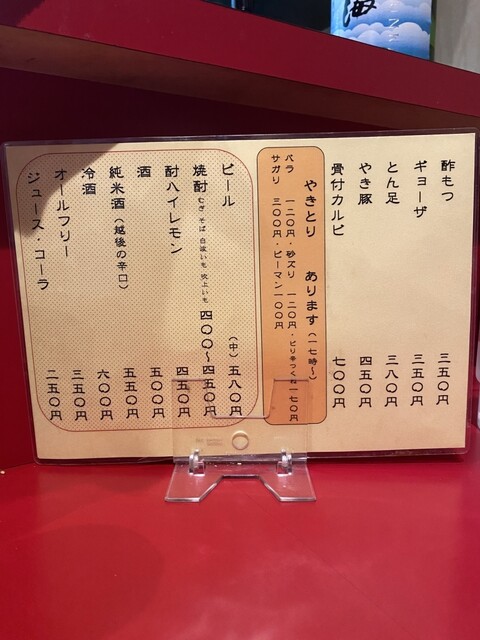 海
酢もつ 三五〇円
ギョーザ 三五〇円
とん足 三八〇円
やき豚 四五〇円
骨付カルビ 七〇〇円
やきとり あります(一七時〜)
バラ 一二〇円・砂ズリ 一二〇円・ピリ辛つくね一七〇円
サガリ 三〇〇円・ピーマン一〇〇円
ビール (中) 五八〇円
焼酎 むぎ そば 白波いも 吹上いも 四〇〇〜四五〇円
酎ハイレモン 四五〇円
酒 五〇〇円
純米酒(越後の辛口) 五五〇円
冷酒 六〇〇円
オールフリー 三五〇円
ジュース・コーラ 二五〇円